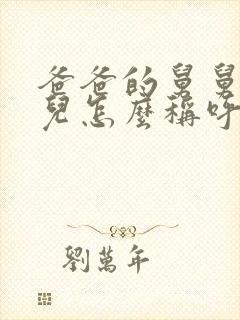 爸爸的舅舅
兒怎麼稱呼
劉萬年